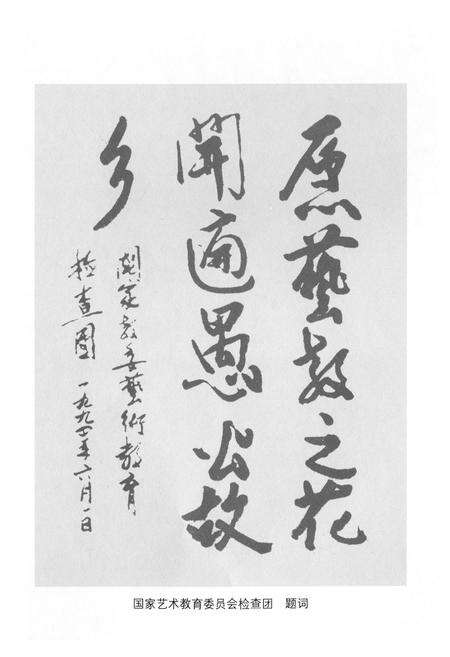 愿藝教之花
開遍愚公故
乡
國家教委藝術教育
检查團 一九九七年六月一日
国家艺术教育委员会检查团 题词